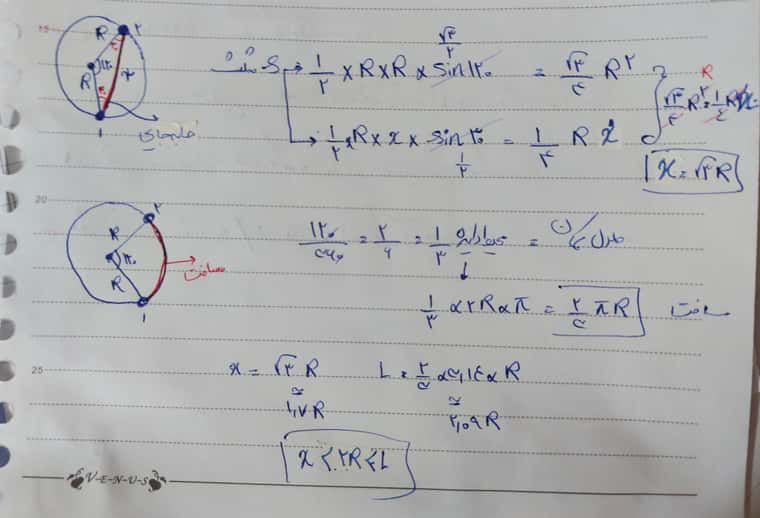 15
R ۲
R ۱۲۰ ۳۰ x
۳۰
۱
جابجایی
S مثلث → ۱/۲ × R × R × sin ۱۲۰ = √۳/۴ R²
√۳/۲
→ ۱/۲ × R × x × sin ۳۰ = ۱/۴ R x
۱/۲
√۳/۴ R² = ۱/۴ R x
x = √۳ R
20
۲
R ۱۲۰
R
۱
مسافت
۱۲۰/۳۶۰ = ۲/۶ = ۱/۳ محیط دایره = طول کمان
۱/۳ × ۲R × π = ۲/۳ πR مسافت
25
x = √۳ R L = ۲/۳ × ۳,۱۴ × R
≃ ۱,۷ R ≃ ۲,۰۹ R
x < ۲R < L
V-E-N-U-S